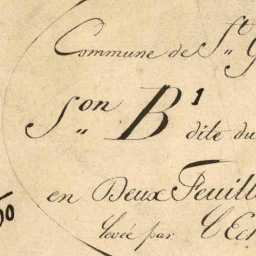 Commune de St G
Son B1
dite du
en Deux Feuill
Levée par l'Ec
50